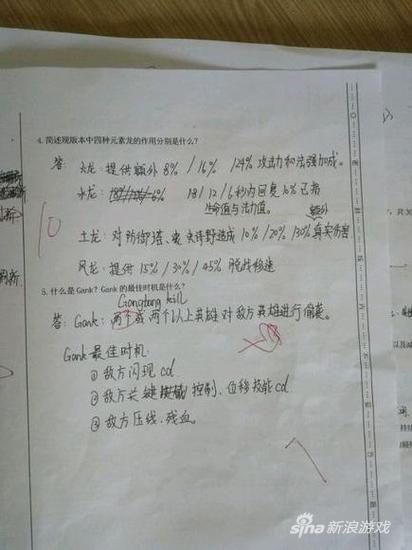 4. 简述现版本中四种元素龙的作用分别是什么?
答: 火龙: 提供额外 8% / 16% / 24% 攻击力和法强加成。
水龙: 18 / 12 / 6 秒内回复 10% 已损
生命值与法力值。
10
额外
土龙: 对防御塔、史诗野造成 10% / 20% / 30% 真实伤害
风龙: 提供 15% / 30% / 45% 脱战移速
5. 什么是 Gank? Gank 的最佳时机是什么?
kill
答: Gank: 两个或两个以上英雄对敌方英雄进行偷袭。
Gank 最佳时机
① 敌方闪现 cd.
② 敌方关键控制、位移技能 cd
③ 敌方压线、残血。
7
sina 新浪游戏